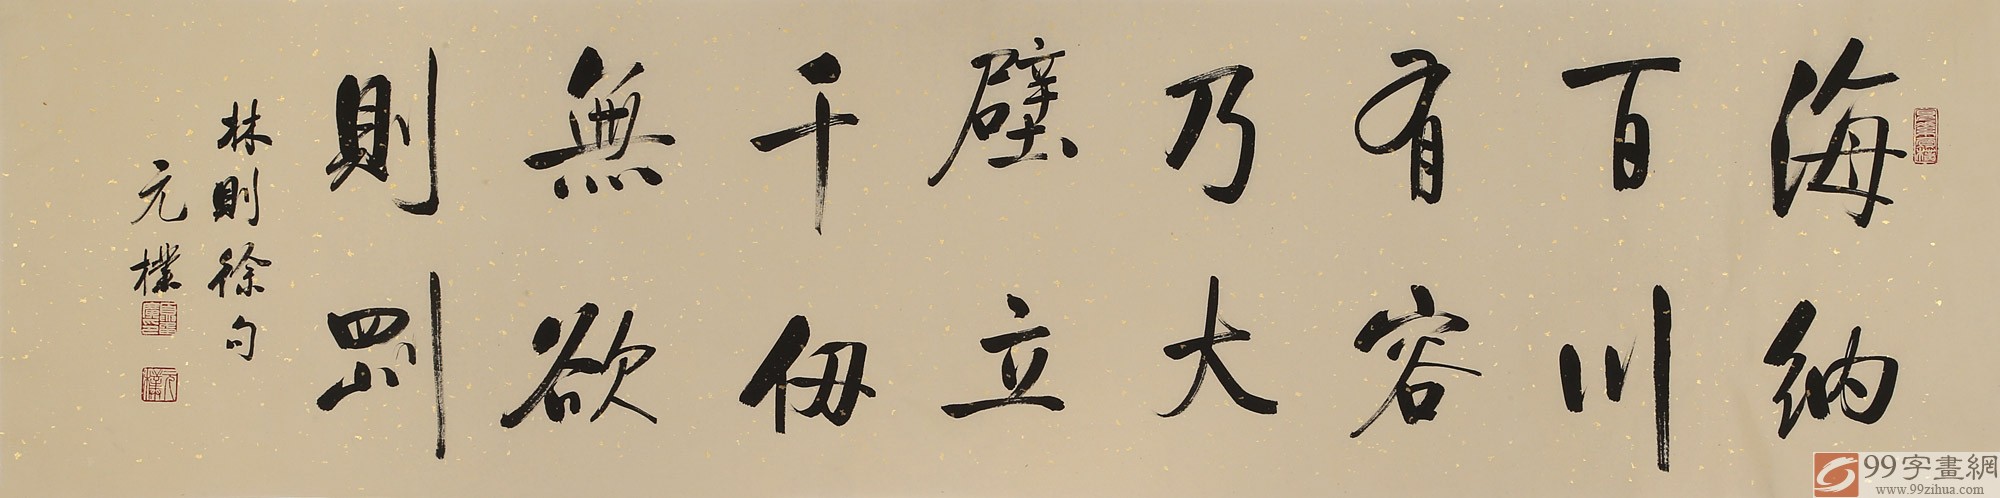 海納
百川
有容
乃大
壁立
千仞
無欲
則剛
林則徐句
元樸
99字畫網
www.99zihua.com